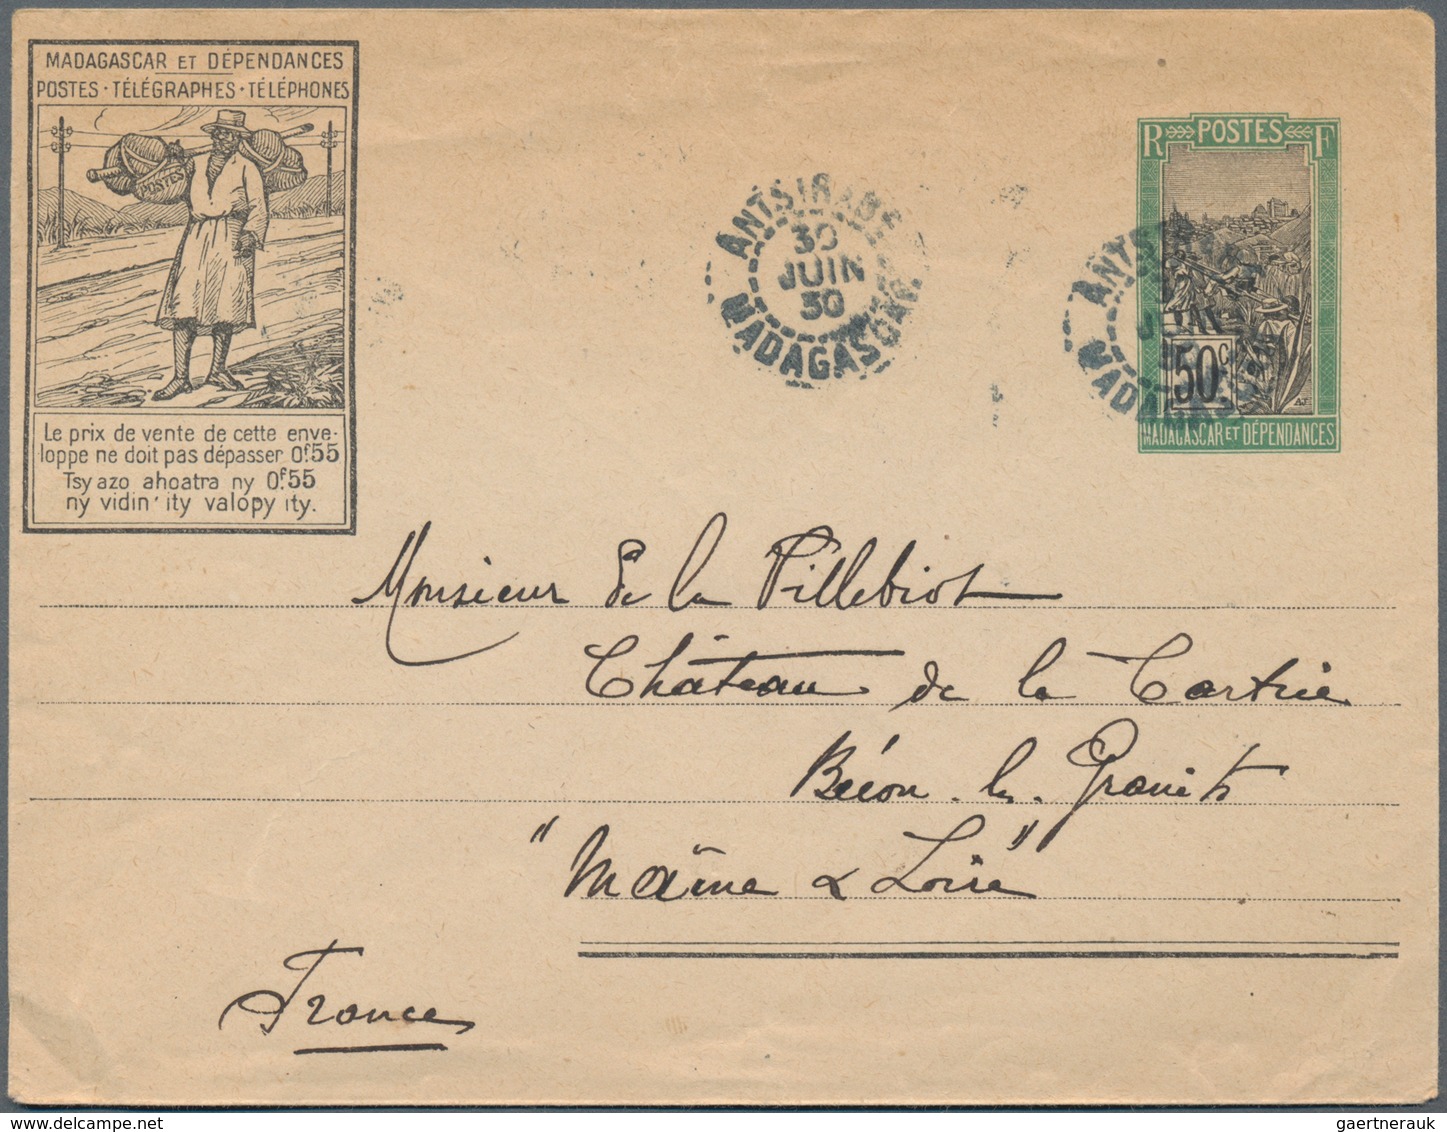 MADAGASCAR ET DÉPENDANCES
POSTES · TÉLÉGRAPHES · TÉLÉPHONES
POSTES
Le prix de vente de cette enve-
loppe ne doit pas dépasser 0f.55
Tsy azo ahoatra ny 0f.55
ny vidin' ity valopy ity.
ANTSIRABE
30
JUIN
30
MADAGASCAR
R POSTES F
ANTSIRABE
JUIN
MADAGASCAR
50c
AJ
MADAGASCAR ET DÉPENDANCES
Monsieur de la Villebiot
Château de la Cartrie
Bécon-les-Granits
"Maine & Loire"
France
gaertnerauk